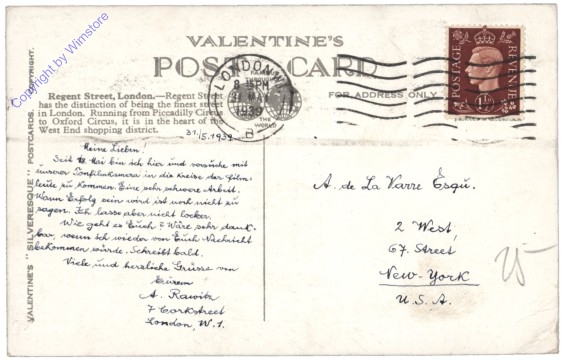 Copyright by Wimstore
VALENTINE'S
POST CARD
FOR ADDRESS ONLY
Regent Street, London.—Regent Street
has the distinction of being the finest street
in London. Running from Piccadilly Circus
to Oxford Circus, it is in the heart of the
West End shopping district.
LONDON
8 PM
MAY
1939
THE
WORLD
B
POSTAGE
REVENUE
1½D
31.5.1939
Meine Lieben!
Seit Mai bin ich hier und versuche mit
unserer Tonfilmkamera in die Kreise der Film-
leute zu kommen. Eine sehr schwere Arbeit.
Wann Erfolg sein wird ist noch nicht zu
sagen. Ich lasse aber nicht locker.
Wie geht es Euch? Wäre sehr dank-
bar, wenn ich wieder von Euch Nachricht
bekommen würde. Schreibt bald.
Viele und herzliche Grüsse von
Eurem
A. Rawitz
7 Corkstreet
London, W. 1.
A. de La Varre Esqu.
2 West,
67. Street
New-York
U.S.A.
VALENTINE'S "SILVERESQUE" POSTCARDS. COPYRIGHT.